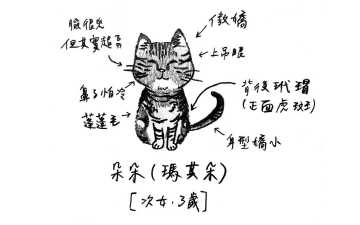 臉很兇
但其實超弱
傲嬌
上吊眼
鼻子怕冷
背後玳瑁
(正面虎斑)
蓬蓬毛
身型嬌小
朵朵(瑪其朵)
[次女.3歲]